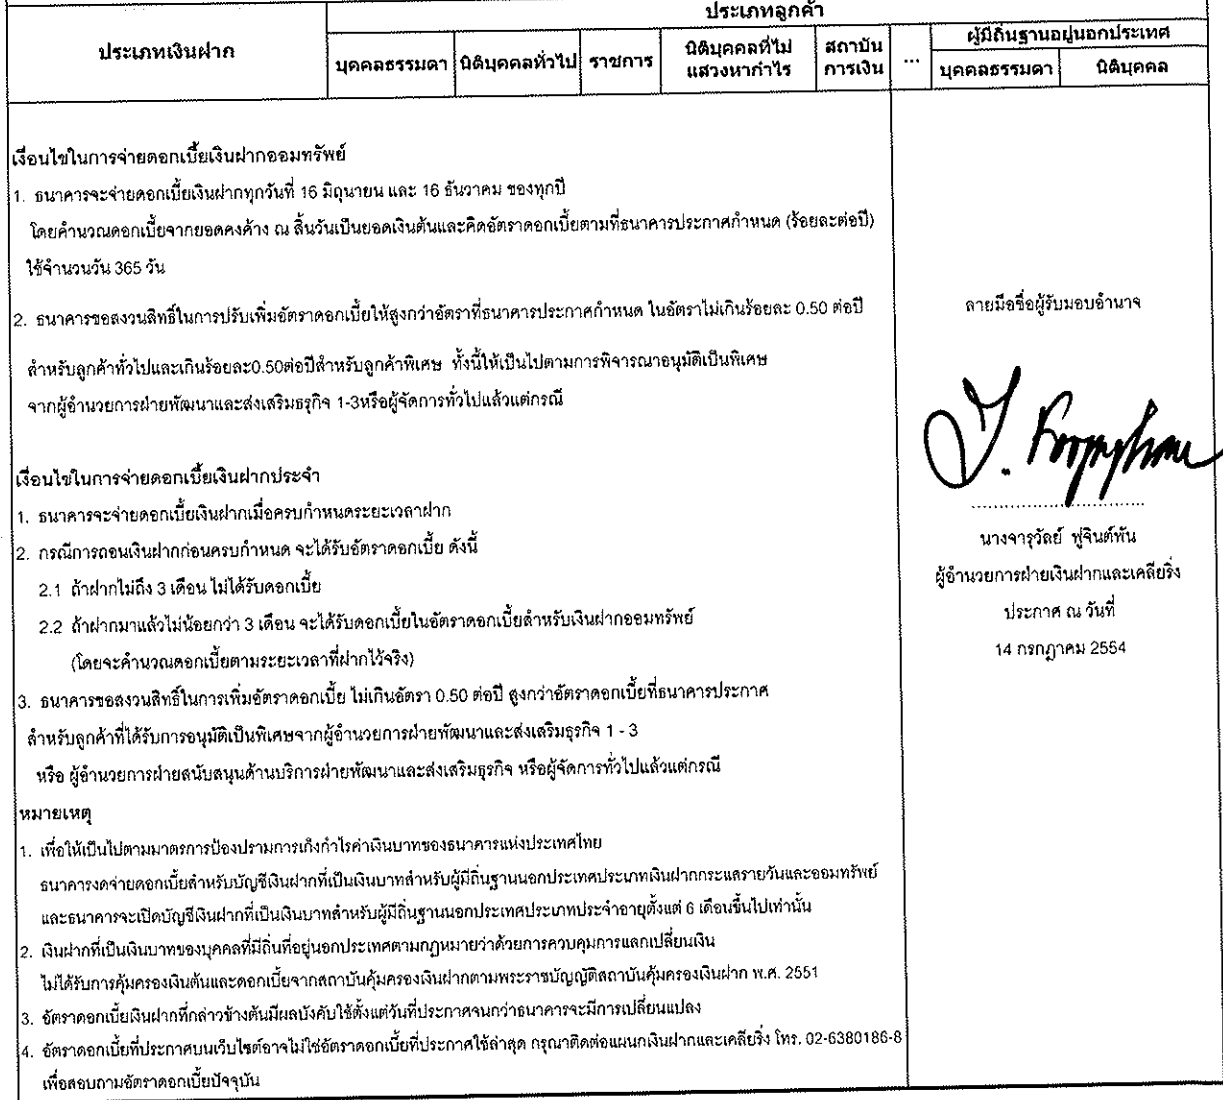 ประเภทลูกค้า
ประเภทเงินฝาก
บุคคลธรรมดา
นิติบุคคลทั่วไป
ราชการ
นิติบุคคลที่ไม่
แสวงหากำไร
สถาบัน
การเงิน
...
ผู้มีถิ่นฐานอยู่นอกประเทศ
บุคคลธรรมดา
นิติบุคคล
เงื่อนไขในการจ่ายดอกเบี้ยเงินฝากออมทรัพย์
1. ธนาคารจะจ่ายดอกเบี้ยเงินฝากทุกวันที่ 16 มิถุนายน และ 16 ธันวาคม ของทุกปี
โดยคำนวณดอกเบี้ยจากยอดคงค้าง ณ สิ้นวันเป็นยอดเงินต้นและคิดอัตราดอกเบี้ยตามที่ธนาคารประกาศกำหนด (ร้อยละต่อปี)
ใช้จำนวนวัน 365 วัน
2. ธนาคารขอสงวนสิทธิ์ในการปรับเพิ่มอัตราดอกเบี้ยให้สูงกว่าอัตราที่ธนาคารประกาศกำหนด ในอัตราไม่เกินร้อยละ 0.50 ต่อปี
สำหรับลูกค้าทั่วไปและเกินร้อยละ0.50ต่อปีสำหรับลูกค้าพิเศษ ทั้งนี้ให้เป็นไปตามการพิจารณาอนุมัติเป็นพิเศษ
จากผู้อำนวยการฝ่ายพัฒนาและส่งเสริมธรุกิจ 1-3หรือผู้จัดการทั่วไปแล้วแต่กรณี
เงื่อนไขในการจ่ายดอกเบี้ยเงินฝากประจำ
1. ธนาคารจะจ่ายดอกเบี้ยเงินฝากเมื่อครบกำหนดระยะเวลาฝาก
2. กรณีการถอนเงินฝากก่อนครบกำหนด จะได้รับอัตราดอกเบี้ย ดังนี้
2.1 ถ้าฝากไม่ถึง 3 เดือน ไม่ได้รับดอกเบี้ย
2.2 ถ้าฝากมาแล้วไม่น้อยกว่า 3 เดือน จะได้รับดอกเบี้ยในอัตราดอกเบี้ยสำหรับเงินฝากออมทรัพย์
(โดยจะคำนวณดอกเบี้ยตามระยะเวลาที่ฝากไว้จริง)
3. ธนาคารขอสงวนสิทธิ์ในการเพิ่มอัตราดอกเบี้ย ไม่เกินอัตรา 0.50 ต่อปี สูงกว่าอัตราดอกเบี้ยที่ธนาคารประกาศ
สำหรับลูกค้าที่ได้รับการอนุมัติเป็นพิเศษจากผู้อำนวยการฝ่ายพัฒนาและส่งเสริมธุรกิจ 1 - 3
หรือ ผู้อำนวยการฝ่ายสนับสนุนด้านบริการฝ่ายพัฒนาและส่งเสริมธุรกิจ หรือผู้จัดการทั่วไปแล้วแต่กรณี
หมายเหตุ
1. เพื่อให้เป็นไปตามมาตรการป้องปรามการเก็งกำไรค่าเงินบาทของธนาคารแห่งประเทศไทย
ธนาคารงดจ่ายดอกเบี้ยสำหรับบัญชีเงินฝากที่เป็นเงินบาทสำหรับผู้มีถิ่นฐานนอกประเทศประเภทเงินฝากกระแสรายวันและออมทรัพย์
และธนาคารจะเปิดบัญชีเงินฝากที่เป็นเงินบาทสำหรับผู้มีถิ่นฐานนอกประเทศประเภทประจำอายุตั้งแต่ 6 เดือนขึ้นไปเท่านั้น
2. เงินฝากที่เป็นเงินบาทของบุคคลที่มีถิ่นที่อยู่นอกประเทศตามกฎหมายว่าด้วยการควบคุมการแลกเปลี่ยนเงิน
ไม่ได้รับการคุ้มครองเงินต้นและดอกเบี้ยจากสถาบันคุ้มครองเงินฝากตามพระราชบัญญัติสถาบันคุ้มครองเงินฝาก พ.ศ. 2551
3. อัตราดอกเบี้ยเงินฝากที่กล่าวข้างต้นมีผลบังคับใช้ตั้งแต่วันที่ประกาศจนกว่าธนาคารจะมีการเปลี่ยนแปลง
4. อัตราดอกเบี้ยที่ประกาศบนเว็บไซต์อาจไม่ใช่อัตราดอกเบี้ยที่ประกาศใช้ล่าสุด กรุณาติดต่อแผนกเงินฝากและเคลียริ่ง โทร. 02-6380186-8
เพื่อสอบถามอัตราดอกเบี้ยปัจจุบัน
ลายมือชื่อผู้รับมอบอำนาจ
นางจารุวัลย์ ฟูจินต์พัน
ผู้อำนวยการฝ่ายเงินฝากและเคลียริ่ง
ประกาศ ณ วันที่
14 กรกฎาคม 2554